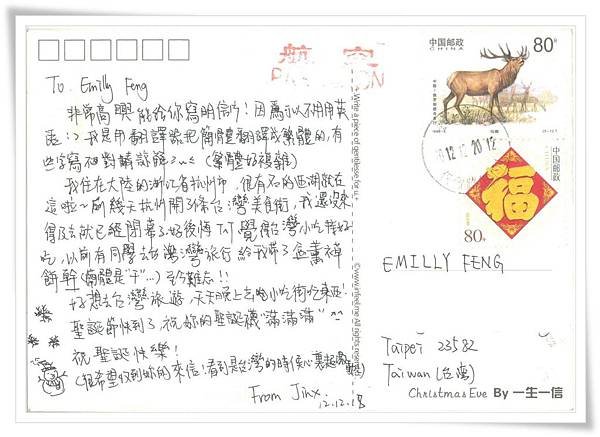 航空
PAR AVION
中国邮政
CHINA
80分
中国邮政
CHINA
80分
福
To Emilly Feng
非常高興能給你寫明信片！因爲可以不用用英
語:> 我是用翻譯器把簡體翻譯成繁體的，有
些字寫不對請諒解>...< (繁體好複雜)
我住在大陸的浙江省杭州市，很有名的西湖就在
這啦~前幾天杭州開了條台灣美食街，我還沒來
得及去就已經閉幕了好後悔TAT覺得台灣小吃非常好
吃，以前有同學去台灣旅行給我帶了盒薰禪
餅乾(簡體是"干"...) 至今難忘!!
好想去台灣旅遊，天天晚上去吃小吃街吃東西!
聖誕節快到了，祝妳的聖誕襪"滿滿滿"^^
祝聖誕快樂！
(很希望收到妳的來信！看到是台灣的時候心裏超激動)
From Jinx
12.12.18
EMILLY FENG
Taipei 23582
Taiwan (台灣)
Christmas Eve By 一生一信